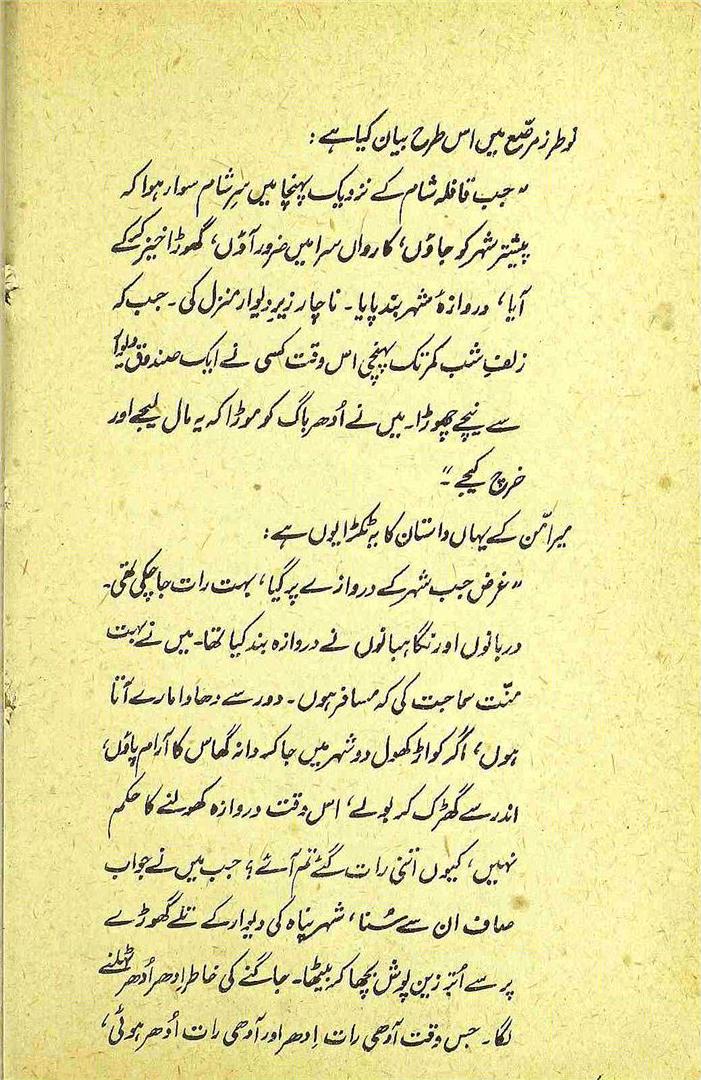 نوطرز مرصّع میں اس طرح بیان کیا ہے:
”جب قافلہ شام کے نزدیک پہنچا میں سرِ شام سوار ہوا کہ
پیشتر شہر کو جاؤں، کارواں سرا میں ضرور آؤں، گھوڑا خیز کر کے
آیا، دروازۂ شہر بند پایا۔ ناچار زیرِ دیوار منزل کی۔ جب کہ
زلفِ شب کمر تک پہنچی اس وقت کسی نے ایک صندوق دیوار
سے نیچے چھوڑا۔ میں نے اُدھر باگ کو موڑا کہ یہ مال لیجے اور
خرچ کیجے۔“
میر امّن کے یہاں داستان کا یہ ٹکڑا یوں ہے:
”غرض جب شہر کے دروازے پر گیا، بہت رات جا چکی تھی۔
دربانوں اور نگاہبانوں نے دروازہ بند کیا تھا۔ میں نے بہت
منّت سماجت کی کہ مسافر ہوں۔ دور سے دھاوا مارے آتا
ہوں، اگر کواڑ کھول دو شہر میں جا کر دانہ گھاس کا آرام پاؤں،
اندر سے گھڑک کر بولے، اس وقت دروازہ کھولنے کا حکم
نہیں، کیوں اتنی رات گئے تم آئے؟ جب میں نے جواب
صاف ان سے سُنا، شہر پناہ کی دیوار کے تلے گھوڑے
پر سے اُتر زین پوش بچھا کر بیٹھا۔ جاگنے کی خاطر اِدھر اُدھر ٹہلنے
لگا۔ جس وقت آدھی رات اِدھر اور آدھی رات اُدھر ہوئی،